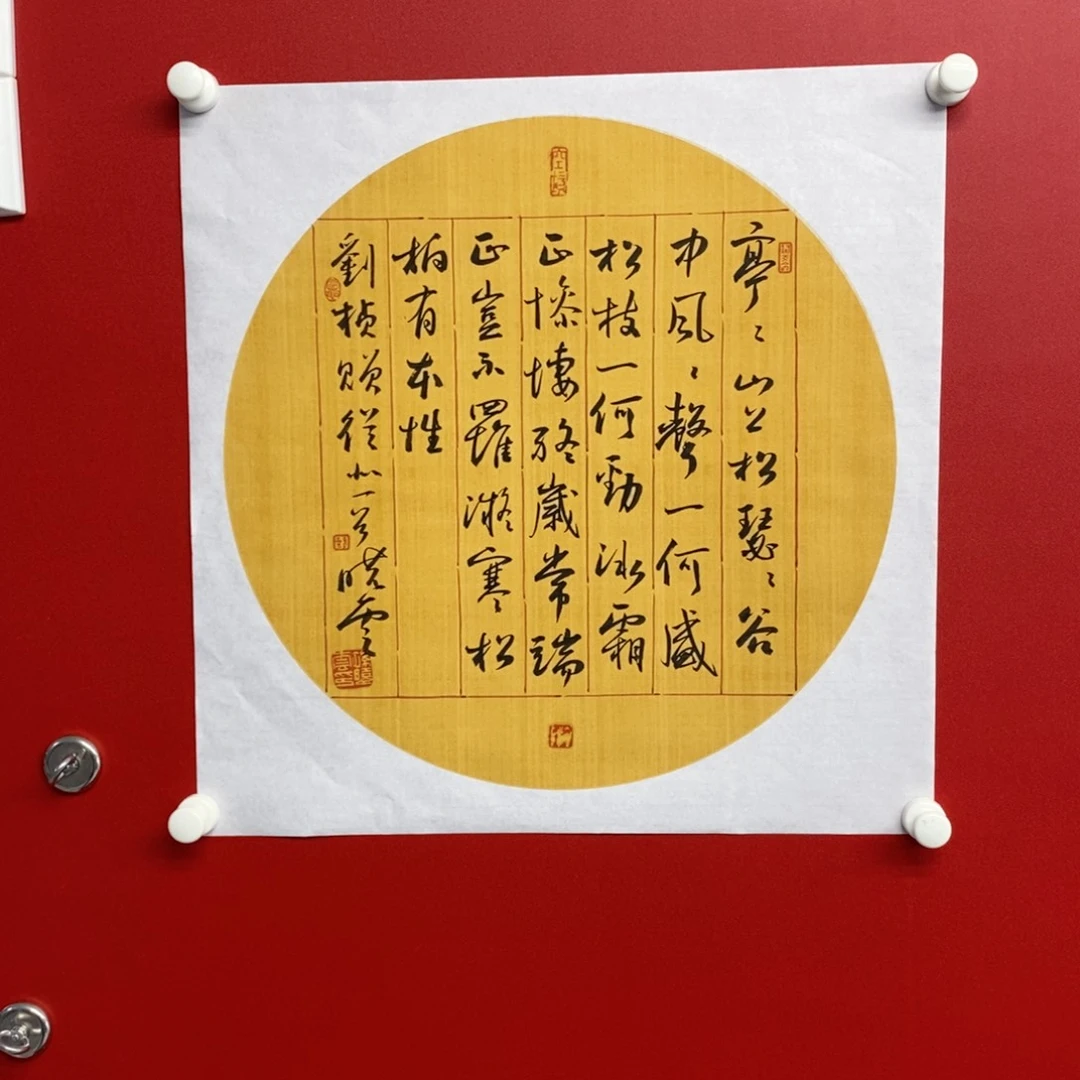 亭〻山上松瑟〻谷
中風〻聲一何盛
松枝一何勁冰霜
正慘悽終歲常端
正豈不罹凝寒松
柏有本性
劉楨贈從弟一首曉雲